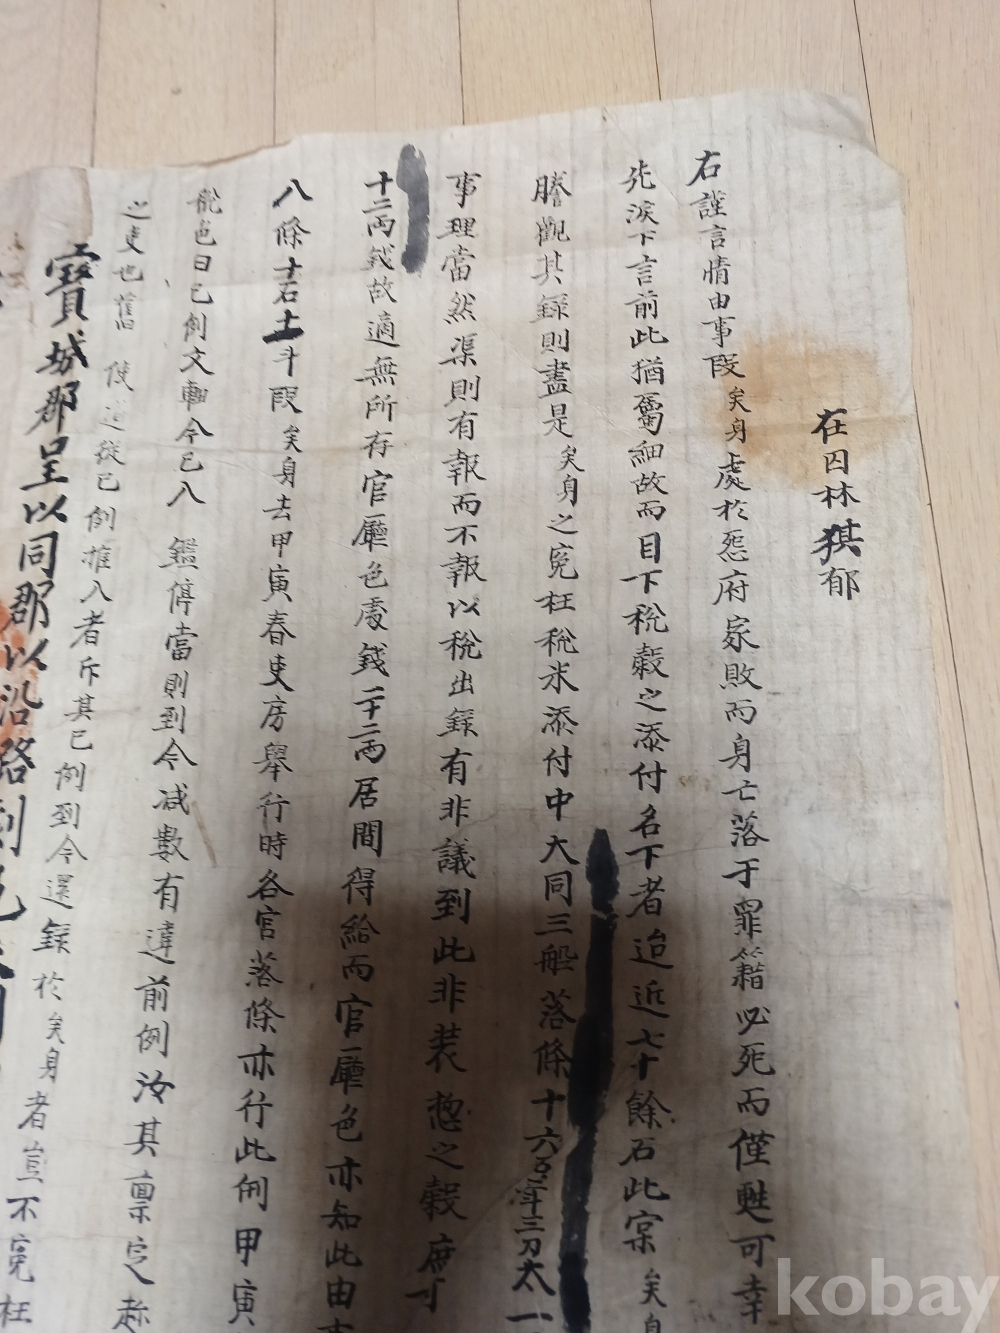 在囚林猉郁
右謹言情由事段矣身處於惡府家敗而身亡落于罪籍必死而僅甦可幸
先淚下言前此猶屬細故而目下稅穀之添付名下者迨近七十餘石此寃矣身
謄觀其錄則盡是矣身之寃枉稅米添付中大同三船落條十六石三刀太一
事理當然渠則有報而不報以稅出錄有非議到此非裝惣之穀庶
十二兩錢故適無所存官廳色處錢二十二兩居間得給而官廳色亦知此由
八條十石十斗段矣身去甲寅春吏房擧行時各官落條亦行此例甲寅
船色日已例文軸今已入鑑停當則到今減數有違前例汝其禀定
之吏也舊使從已例推入者斥其已例到今還錄於矣身者豈不寃枉
寶城郡呈以同郡以沿路到
kobay